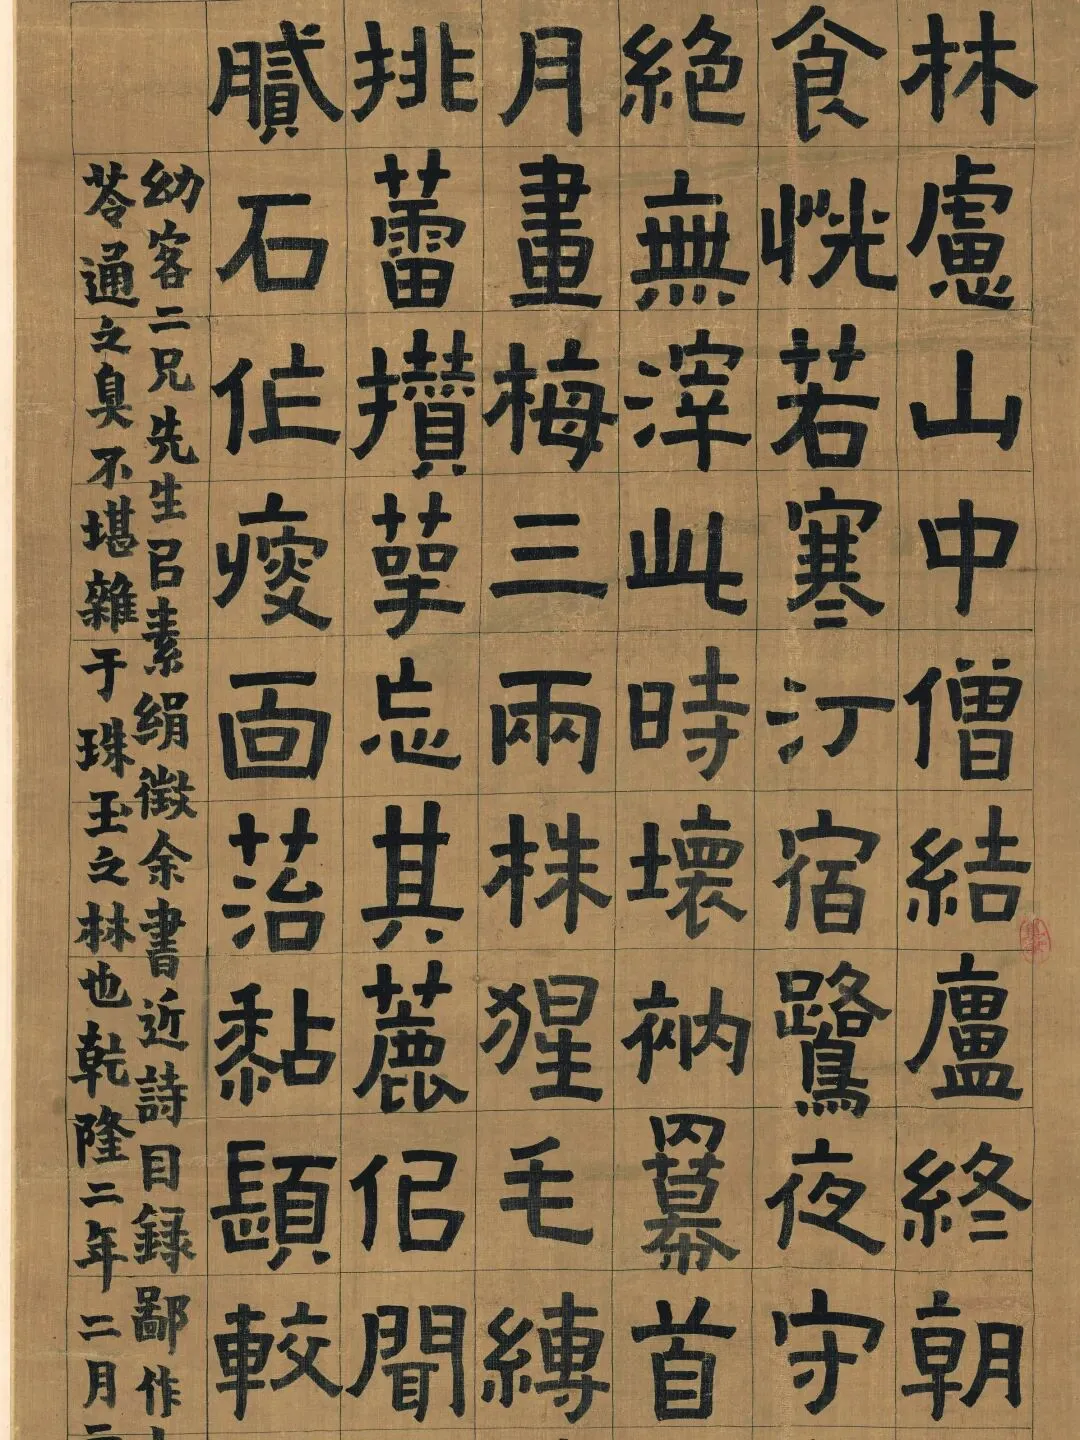 林慮山中僧結廬終朝
食恍若寒汀宿鷺夜守
絕無滓此時壞衲冪首
月畫梅三兩株猩毛縳
挑蕾攢萼忘其麄佀聞
石作瘦面菭黏顋較
幼客二兄先生吕素絹徵余書近詩目録鄙作
苓通之臭不堪雜于珠玉之林也乾隆二年二月二